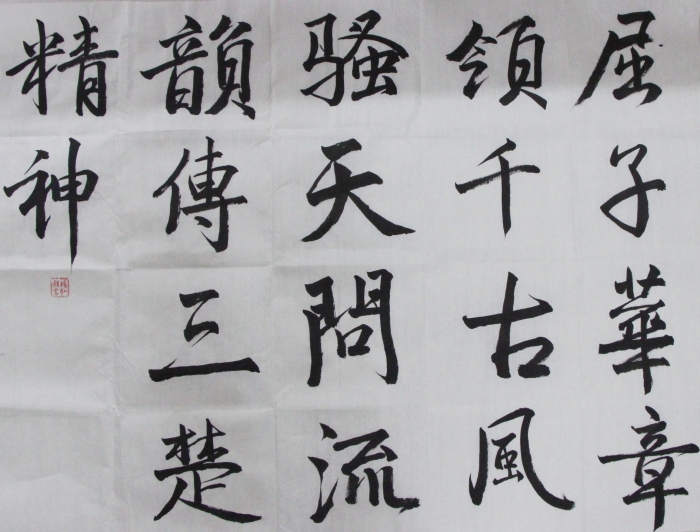 屈子華章
領千古風
騷天問流
韻傳三楚
精神